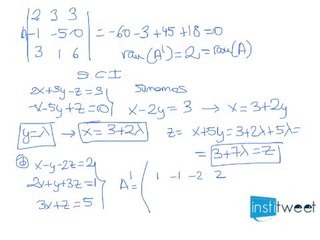 |2 3 3|
|-1 -5 0| = -60-3+45+18=0
|3 1 6| ran(A') = 2 = ran(A)
S C I
2x+3y-z=3
-x-5y+z=0
Sumamos
x-2y=3 → x=3+2y
y=λ → x=3+2λ
z= x+5y=3+2λ+5λ=
= 3+7λ=z
d) x-y-2z=2
2x+y+3z=1
3x+z=5
A' = ( 1 -1 -2 2
institweet